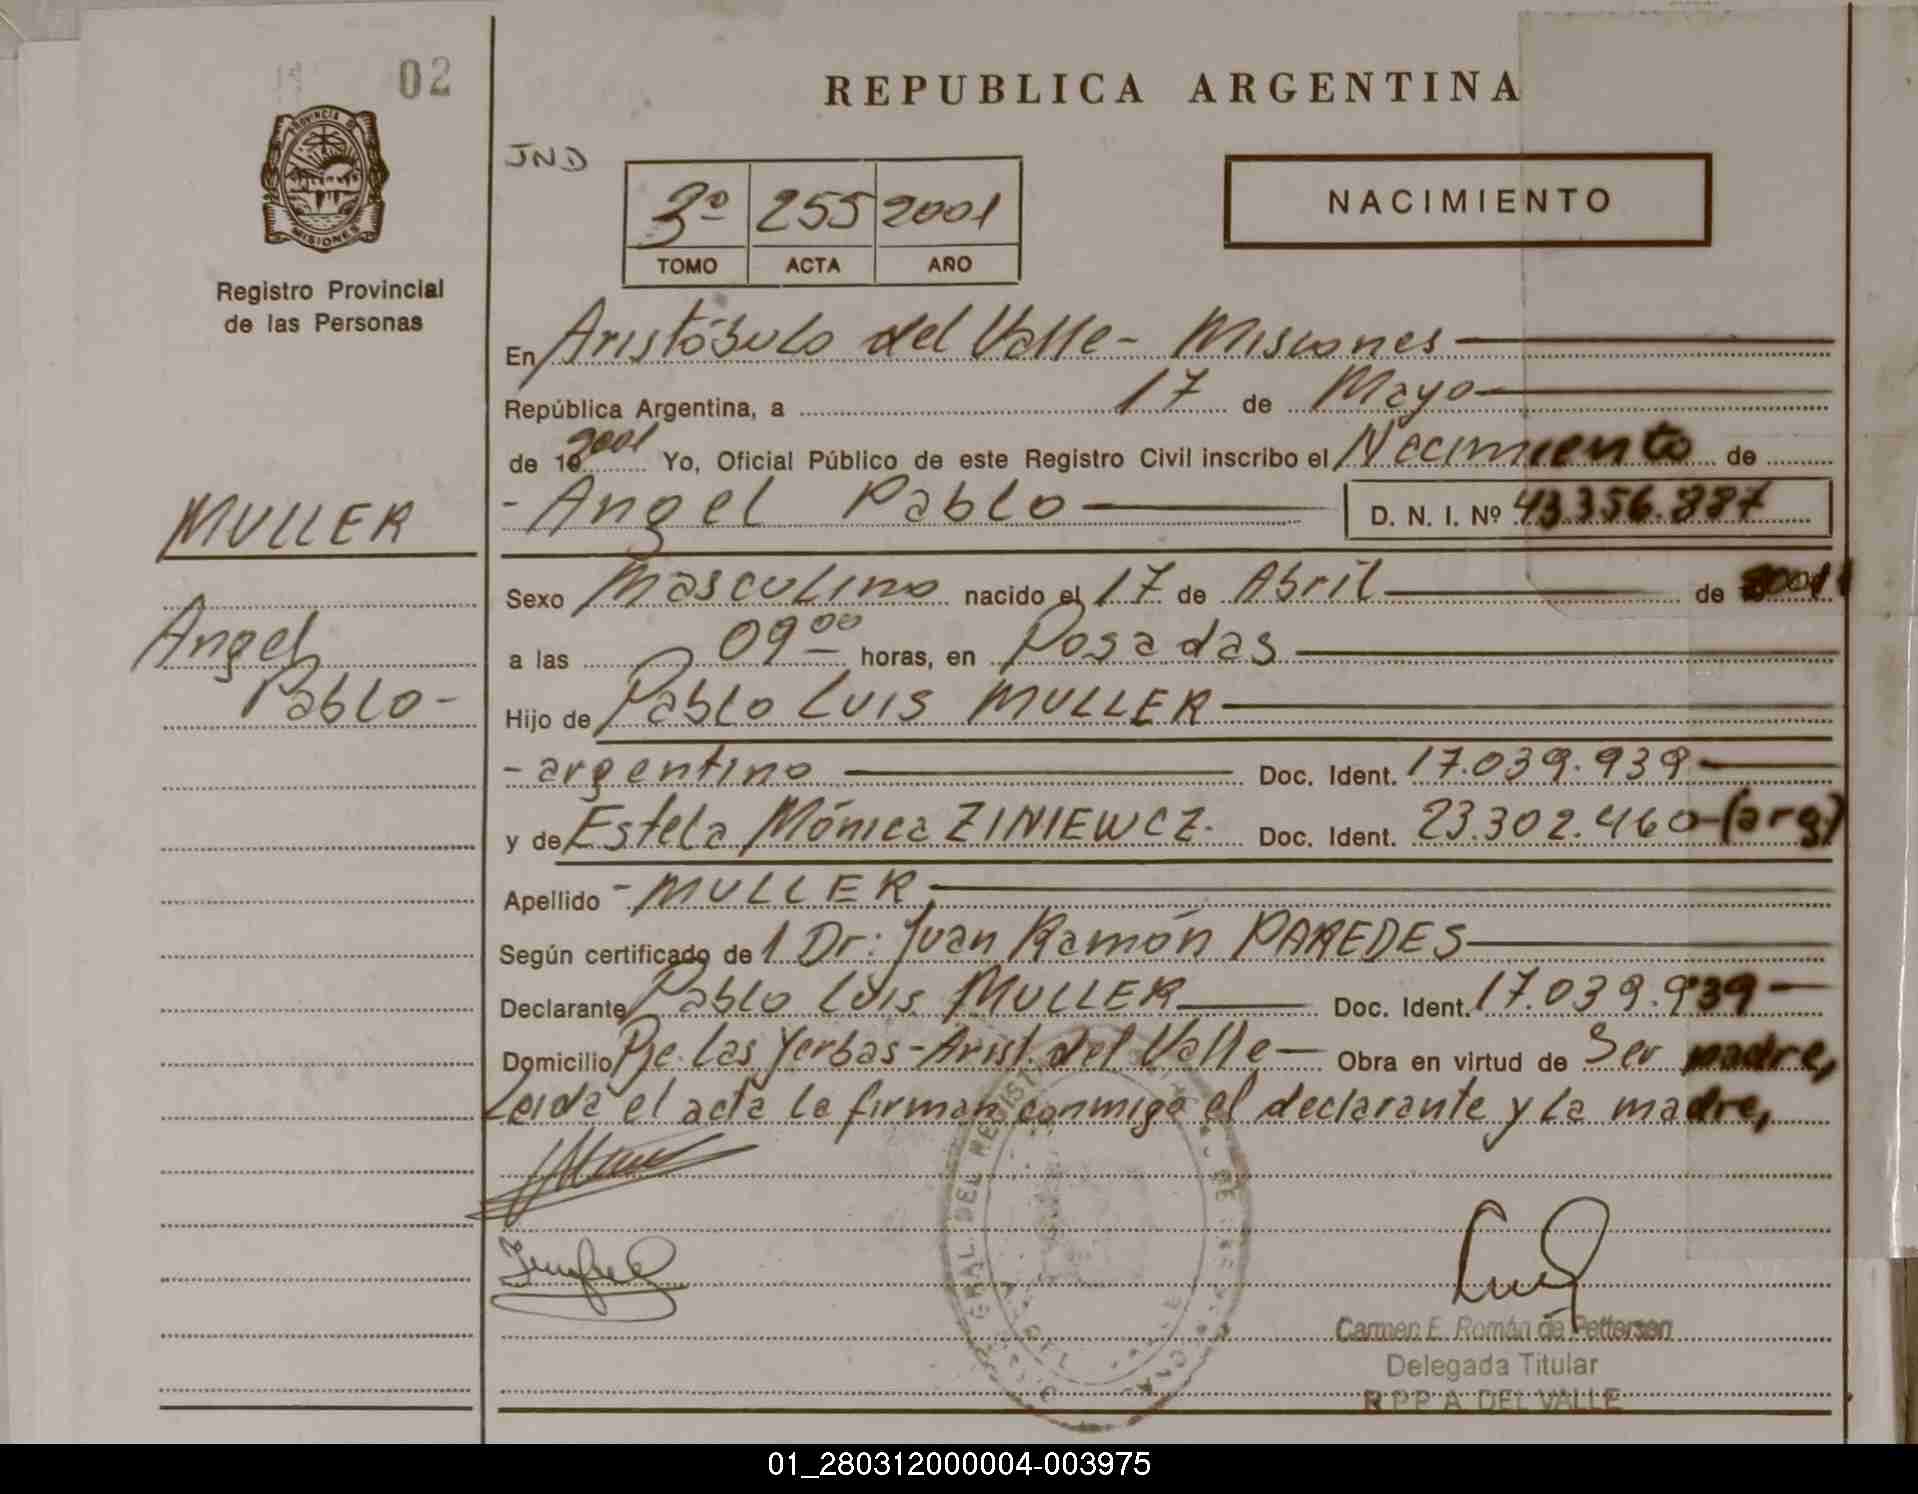 02
PROVINCIA DE
MISIONES
Registro Provincial
de las Personas
REPUBLICA ARGENTINA
JND
3º 255 2001
TOMO ACTA AÑO
NACIMIENTO
En Aristóbulo del Valle - Misiones
República Argentina, a 17 de Mayo
de 19 2001 Yo, Oficial Público de este Registro Civil inscribo el Nacimiento de
- Angel Pablo D. N. I. Nº 43.356.887
MULLER
Angel
Pablo -
Sexo Masculino nacido el 17 de Abril de 2001
a las 09 00 horas, en Posadas
Hijo de Pablo Luis MULLER
- argentino Doc. Ident. 17.039.939
y de Estela Mónica ZINIEWCZ. Doc. Ident. 23.302.460 - (arg)
Apellido - MULLER
Según certificado de l Dr: Juan Ramón PAREDES
Declarante Pablo Luis MULLER Doc. Ident. 17.039.939 -
Domicilio Pje. Las Yerbas - Arist. del Valle - Obra en virtud de Ser madre,
Leida el acta la firman conmigo el declarante y la madre,
Carmen E. Román de Pettersen
Delegada Titular
R P P A DEL VALLE
01_280312000004-003975